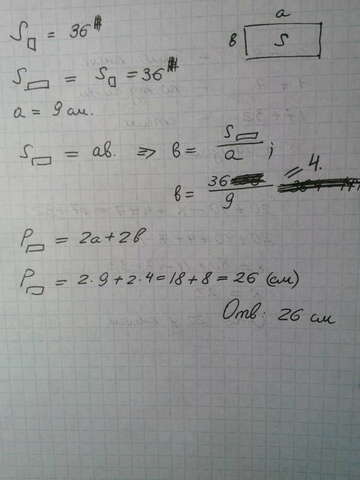 S▯ = 36
a
в S
S▭ = S▯ = 36
a = 9 см.
S▭ = aв. => в = S▭/a ;
в = 36/9 = 4.
P▭ = 2a + 2в
P▭ = 2·9 + 2·4 = 18 + 8 = 26 (см)
Отв: 26 см